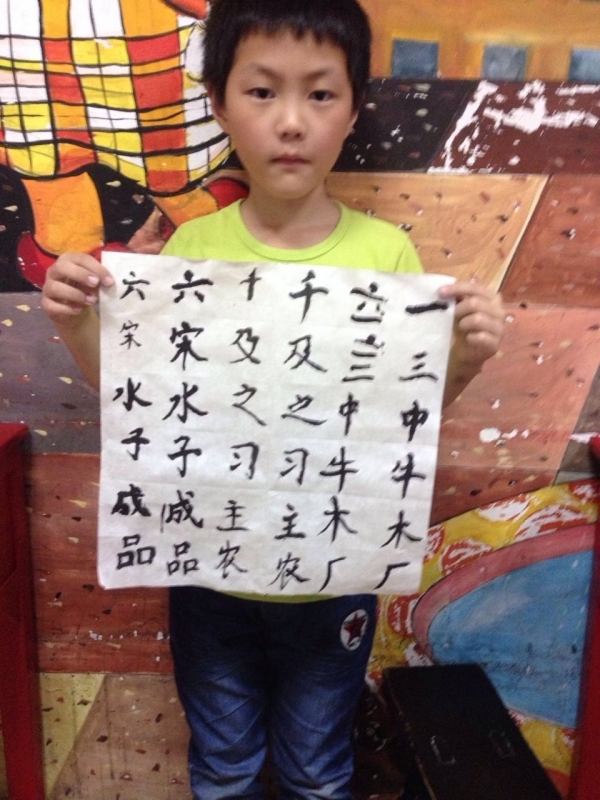 一三中牛木厂
三中牛木厂
千及之习主农
千及之习主农
六宋水子成品
六宋水子成品